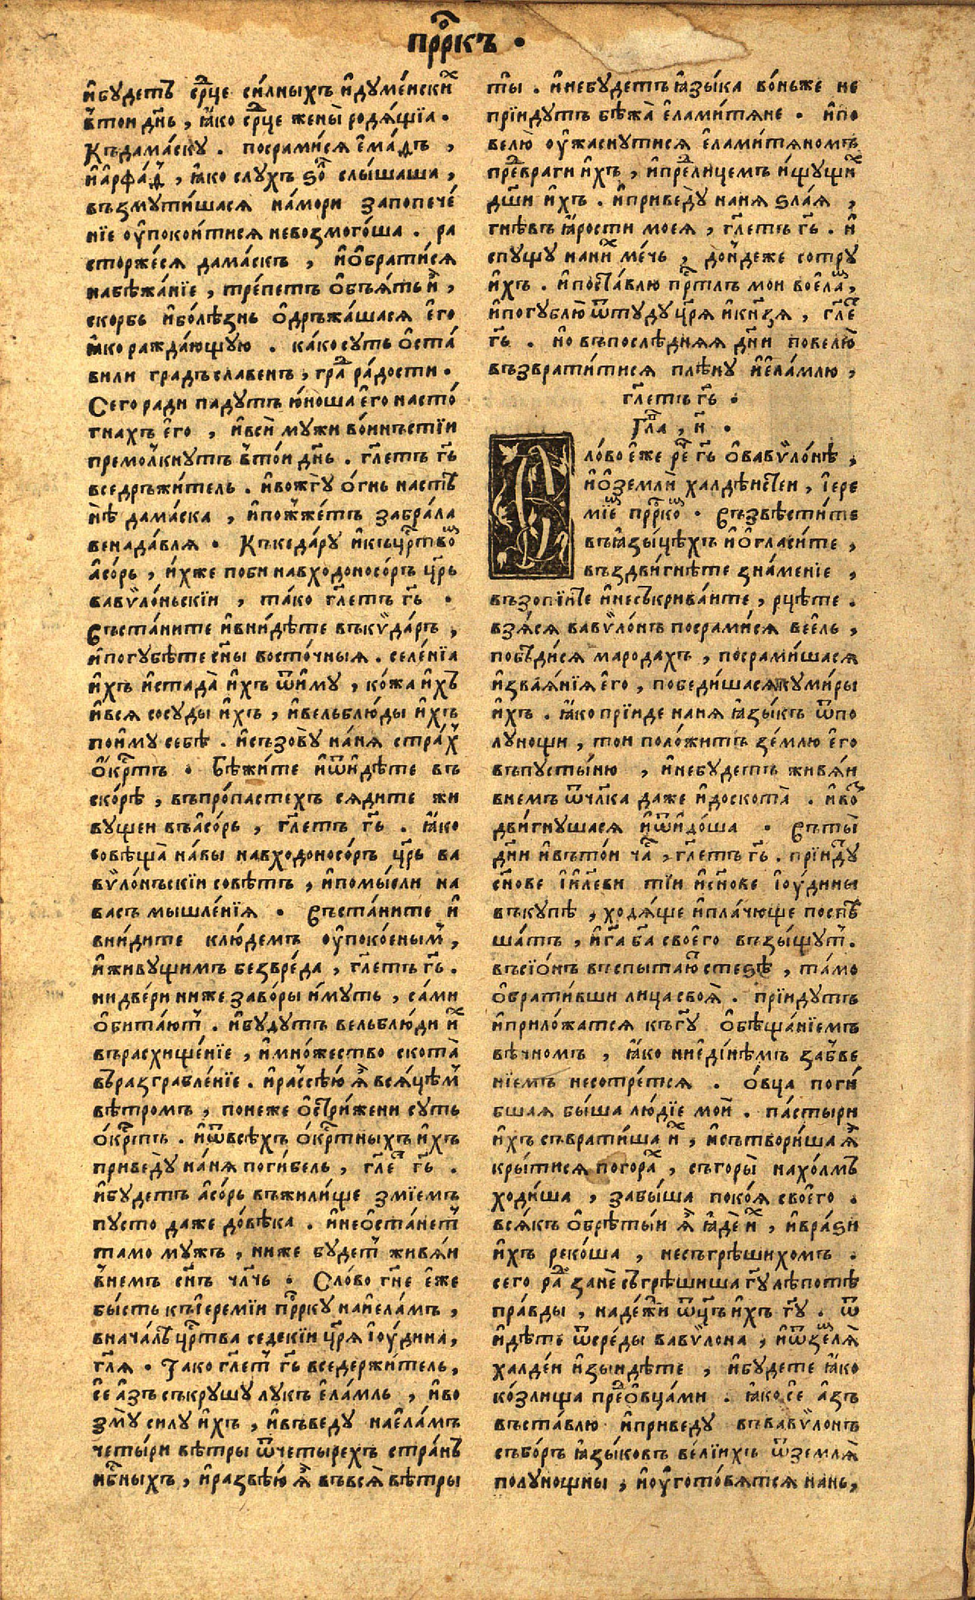 прⷪ҇ркъ ·
и҆бꙋдетъ се́рⷣце си́лныхъ и҆дꙋме́нскиⷯ
в̾то́и дн҃ь, ꙗ҆́ко се́рⷣце жены̀ родѧ́щїа ·
Къдама́скꙋ . посрами́сѧ є҆ма́дъ ,
и҆а҆рфа́дⸯ, ꙗ҆́ко слꙋхъ ѕо́лъ слы́шаша ,
възмꙋти́шасѧ на́мори запопече́
нїе оу҆покои́тисѧ невозмого́ша . ра
сторже́сѧ дама́скъ , и҆ѻ҆брати́сѧ
набѣжа́нїе , тре́петъ ѻ҆бъѧ́тъ и҆̀ ,
ско́рбь и҆болѣ́знь ѻ҆дръжа́шасѧ є҆го̀
ꙗ҆́ко ражда́ющꙋю . ка́косꙋть ѻ҆ста́
вили гра́дъ сла́венъ , граⷣ ра́дости ·
Сего́ ради падꙋ́тъ ю҆́ноша є҆го̀ насто́
гнахъ є҆го̀ , и҆всѝ мꙋ́жи во́инъстїи
премо́лкнꙋтъ в̾то́и дн҃ь . гл҃етъ гь҃
вседръжи́тель . и҆вожгꙋ̀ ѻ҆́гнь настѣ
нѣ̀ дама́ска , и҆пожже́тъ забра́ла
венада́влѧ · Къкеда́рꙋ и҆къцрⷭ҇твоⷨ
а҆со́рь , и҆́хже побѝ навходоносо́ръ цр҃ь
вавѷло́ньскїи , та́ко гл҃етъ гь҃ ·
Въста́ните и҆вни́дѣте въкѷда́ръ ,
и҆погꙋбѣ́те сн҃ы восто́чныѧ . селе́нїа
и҆́хъ и҆стада̀ и҆́хъ ѿи҆мꙋ̀ , ко́жа и҆́хъ
и҆всѧ̀ сосꙋ́ды и҆́хъ , и҆вельблю́ды и҆́хъ
пои҆мꙋ̀ себѣ̀ . и҆съзовꙋ̀ на́нѧ страⷯ
ѻ҆́крⷭ҇тъ · Бѣжи́те и҆ѿи҆дѣ́те въ
ско́рѣ , въпропастехъ сѧди́те жи
вꙋщеи въа҆со́рь , гл҃етъ гь҃ . ꙗ҆́ко
совѣща̀ на́вы навходоносо́ръ цр҃ь ва
вѷло́нъскїи совѣ́тъ , и҆помы́сли на
ва́съ мышле́нїѧ · Въста́ните и҆
вни́дите клю́демъ оу҆поко́еныⷨ ,
и҆живꙋ́щимъ безвре́да , гл҃етъ гь҃ .
нидве́ри ниже заво́ры и҆́мꙋть , са́ми
ѻ҆бита́ютъ . и҆бꙋ́дꙋтъ вельблю́ди и҆́ⷯ
върасхище́нїе , и҆мно́жество скота̀
въразграбле́нїе . и҆расѣ́ю ѧ҆̀ всѧ́цѣⷨ
вѣ́тромъ , понеже ѻ҆стри́жени сꙋ́ть
ѻ҆́крⷭ҇тъ . и҆ѿвсѣ́хъ ѻ҆́крⷭ҇тныхъ и҆́хъ
приведꙋ̀ на́нѧ поги́бель , гл҃етъ гь҃ .
и҆бꙋ́детъ а҆со́рь въжили́ще змїе́мъ
пꙋсто даже до́вѣка . и҆неѻ҆ста́нетъ
тамо мꙋ́жъ , ниже бꙋдетъ живѧ́и
в̾не́мъ сн҃ъ чл҃чь · Сло́во гн҃е є҆́же
бы́сть къі҆еремі́и прⷪ҇ркꙋ нае҆ла́мъ ,
внача́лѣ црⷭ҇тва седекі́и цр҃ѧ і҆ꙋ́дина,
гл҃ѧ · Та́ко гл҃етъ гь҃ вседержи́тель,
се́ а҆́зъ съкрꙋшꙋ̀ лꙋ́къ є҆ла́мль , и҆во
змꙋ̀ си́лꙋ и҆́хъ , и҆въведꙋ̀ нае҆ла́мъ
четы́ри вѣ́тры ѿчетырехъ стра́нъ
нбⷭ҇ныхъ , и҆развѣ́ю ѧ҆̀ въвсѧ̀ вѣ́тры
ты̀ . и҆небꙋ́детъ ꙗ҆зы́ка во́ньже не
прїи́дꙋтъ бѣжа̀ є҆лами́тѧне · и҆по
велю̀ оу҆жаснꙋ́тисѧ є҆лами́тѧномъ
преⷣвраги и҆́хъ , и҆преⷣлице́мъ и҆́щꙋщиⷯ
дш҃и и҆́хъ . и҆приведꙋ̀ на́нѧ ѕла́ѧ ,
гнѣ́въ ꙗ҆́рости моеѧ̀ , гл҃етъ гь҃ . и҆
спꙋщꙋ̀ нани́ⷯ ме́чь , до́ндеже сотрꙋ̀
и҆́хъ . и҆поста́влю прⷭ҇тлъ мо́и вое҆ла́ⷨ,
и҆погꙋблю̀ ѿтꙋдꙋ цр҃ѧ и҆кн҃зѧ , гл҃етъ
гь҃ . но въпослѣ́днѧѧ дн҃и повелю̀
възврати́тисѧ плѣ́нꙋ и҆е҆ла́млю ,
гл҃етъ гь҃ .
Гла́ , н҃ .
Сло́во є҆́же ре́ⷱ гь҃ ѻ҆вавѷло́нѣ ,
и҆ѻ҆землѝ халдѣ́йстеи , і҆ере
мі́еⷨ прⷪ҇ркоⷨ · Възвѣсти́те
въꙗ҆зы́цѣхъ и҆ѻ҆гласи́те ,
въздви́гнѣте зна́менїе ,
възопі́ите и҆несъкрива́ите , рцѣ́те .
взѧ́сѧ вавѷло́нъ посрами́сѧ веи҆́ль ,
побѣди́сѧ марода́хъ , посрами́шасѧ
и҆зваѧ́нїѧ є҆го̀ , победи́шасѧ кꙋми́ры
и҆́хъ . ꙗ҆́ко прїи́де на́нѧ ꙗ҆зы́къ ѿпо
лꙋнощи , то́и поло́житъ зе́млю є҆го̀
въпꙋсты́ню , и҆небꙋдетъ живѧ́и
внемъ ѿчл҃ка даже и҆доскота̀ . и҆воⷥ
дви́гнꙋшасѧ и҆ѿи҆до́ша · Въты̀
дн҃и и҆въто́и чаⷭ҇ , гл҃етъ гь҃ . прїи́дꙋ
сн҃ове і҆и҃леви ті́и и҆сн҃ове і҆ꙋ́дины
въкꙋпѣ , ходѧ́ще и҆пла́чюще поспѣ
ша́тъ , и҆га҃ ба҃ своего̀ възы́щꙋтъ .
въсїо́нъ въспыта́ютъ стеѕѣ̀ , та́мо
ѻ҆брати́вши лица своѧ̀ . прїи́дꙋтъ
и҆прило́жатсѧ къгꙋ҃ ѻ҆бѣща́нїемъ
вѣ́чномъ , ꙗ҆́ко ниеди́нѣмъ забве
нїемъ несотре́тсѧ . ѻ҆вца̀ поги́
бшаѧ бы́ша лю́дїе мои̑ . па́стыри
и҆́хъ съврати́ша и҆́ⷯ , и҆сътвори́ша ѧ҆̀
кры́тисѧ погора́ⷯ , съгоры̀ нахо́лмъ
ходи́ша , забы́ша поко́ѧ своего̀ .
всѧ́къ ѻ҆брѣ́тыи ѧ҆̀ ꙗ҆дѐ и҆́ⷯ , и҆вра́ѕи
и҆́хъ реко́ша , несъгрѣши́хомъ .
сего раⷣ занѐ съгрѣши́ша гꙋ҃ лѣпотѣ
пра́вды , наде́жи ѿц҃ъ и҆́хъ гꙋ҃ . ѿ
и҆дѣ́те ѿсреды̀ вавѷло́на , и҆ѿземлѧ̀
халде́и и҆зыидѣ́те , и҆бꙋ́дете ꙗ҆́ко
ко́злища преⷣѻ҆вца́ми . ꙗ҆́ко се́ а҆́зъ
въста́влю и҆приведꙋ̀ въвавѷло́нъ
събо́ръ ꙗ҆зы́ковъ ве́лїихъ ѿземлѧ̀
полꙋнощны , и҆оу҆гото́вѧтсѧ нань ,